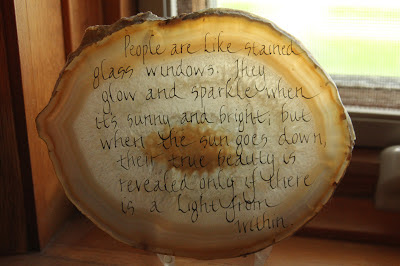 People are like stained
glass windows. They
glow and sparkle when
it's sunny and bright; but
when the sun goes down,
their true beauty is
revealed only if there
is a light from
within.